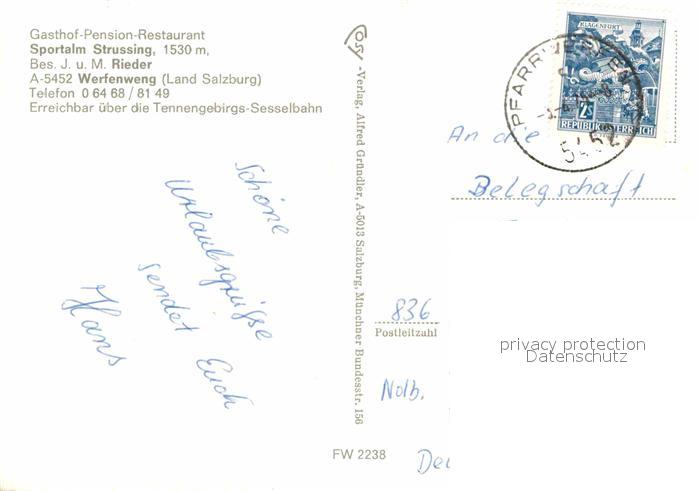 Gasthof-Pension-Restaurant
Sportalm Strussing, 1530 m,
Bes. J. u. M. Rieder
A-5452 Werfenweng (Land Salzburg)
Telefon 0 64 68 / 81 49
Erreichbar über die Tennengebirgs-Sesselbahn
Schöne
Urlaubsgrüsse
sendet Euch
Hans
Cosy-Verlag, Alfred Gründler, A-5013 Salzburg, Münchner Bundesstr. 156
KLAGENFURT
2S
REPUBLIK ÖSTERREICH
PFARRWERFEN
5452
An die
Belegschaft
836
Postleitzahl
privacy protection
Datenschutz
Nolb.
FW 2238